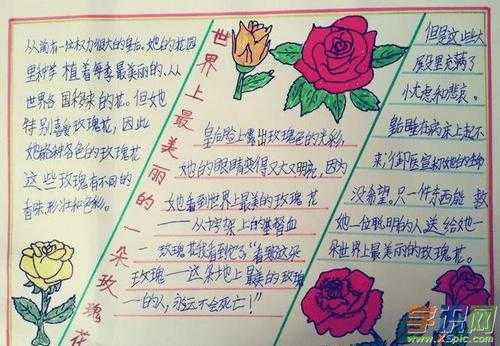 从前有一位权力很大的皇后。她的花园
里种植着每季最美丽的、从
世界各国移来的花。但她
特别喜爱玫瑰花，因此
她有各色的玫瑰花
这些玫瑰有不同的
香味、形状和色彩。
世界上最美丽的一朵玫瑰花
皇后脸上露出玫瑰色的光彩，
她的眼睛变得又大又明亮，因为
她看到世界上最美的玫瑰花
——从十字架上的基督血
玫瑰花我看到它了 “看到这朵
玫瑰——这朵地上最美的玫瑰
——的人，永远不会死亡！”
但是这些大
屋里充满了
忧虑和悲哀。
皇后睡在病床上起不
来，御医宣布她的生命
没希望。只一件东西能救
她一位聪明的人，送给她一
朵世界上最美丽的玫瑰花。
学识网
www.XSpic.com